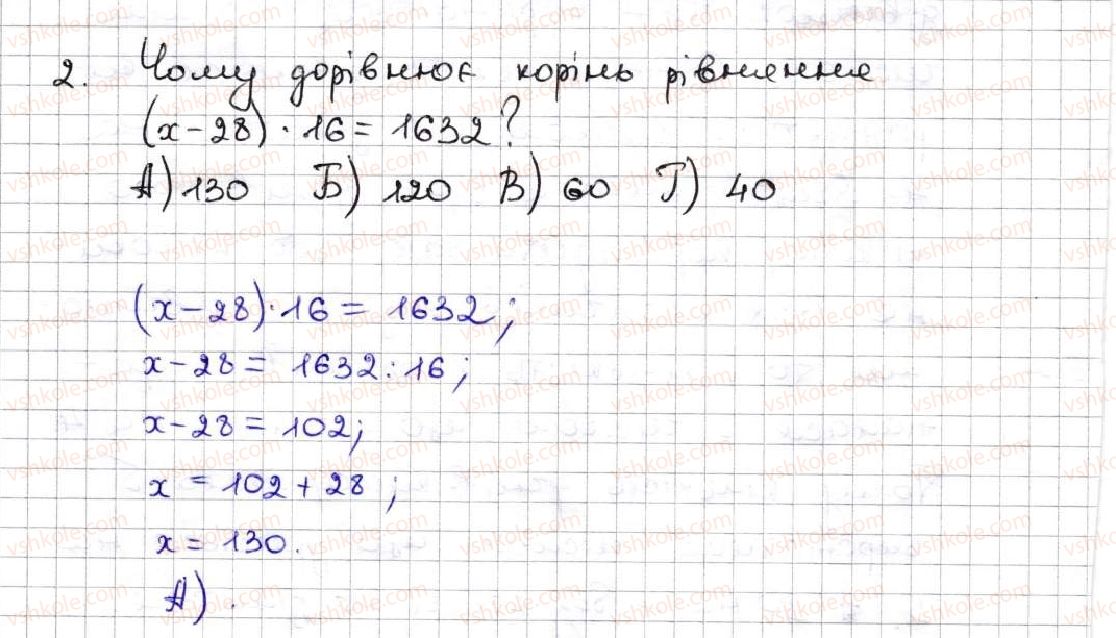 2. Чому дорівнює корінь рівняння
(x-28)·16=1632?
А) 130 Б) 120 В) 60 Г) 40
(x-28)·16=1632;
x-28=1632:16;
x-28=102;
x=102+28;
x=130.
А).